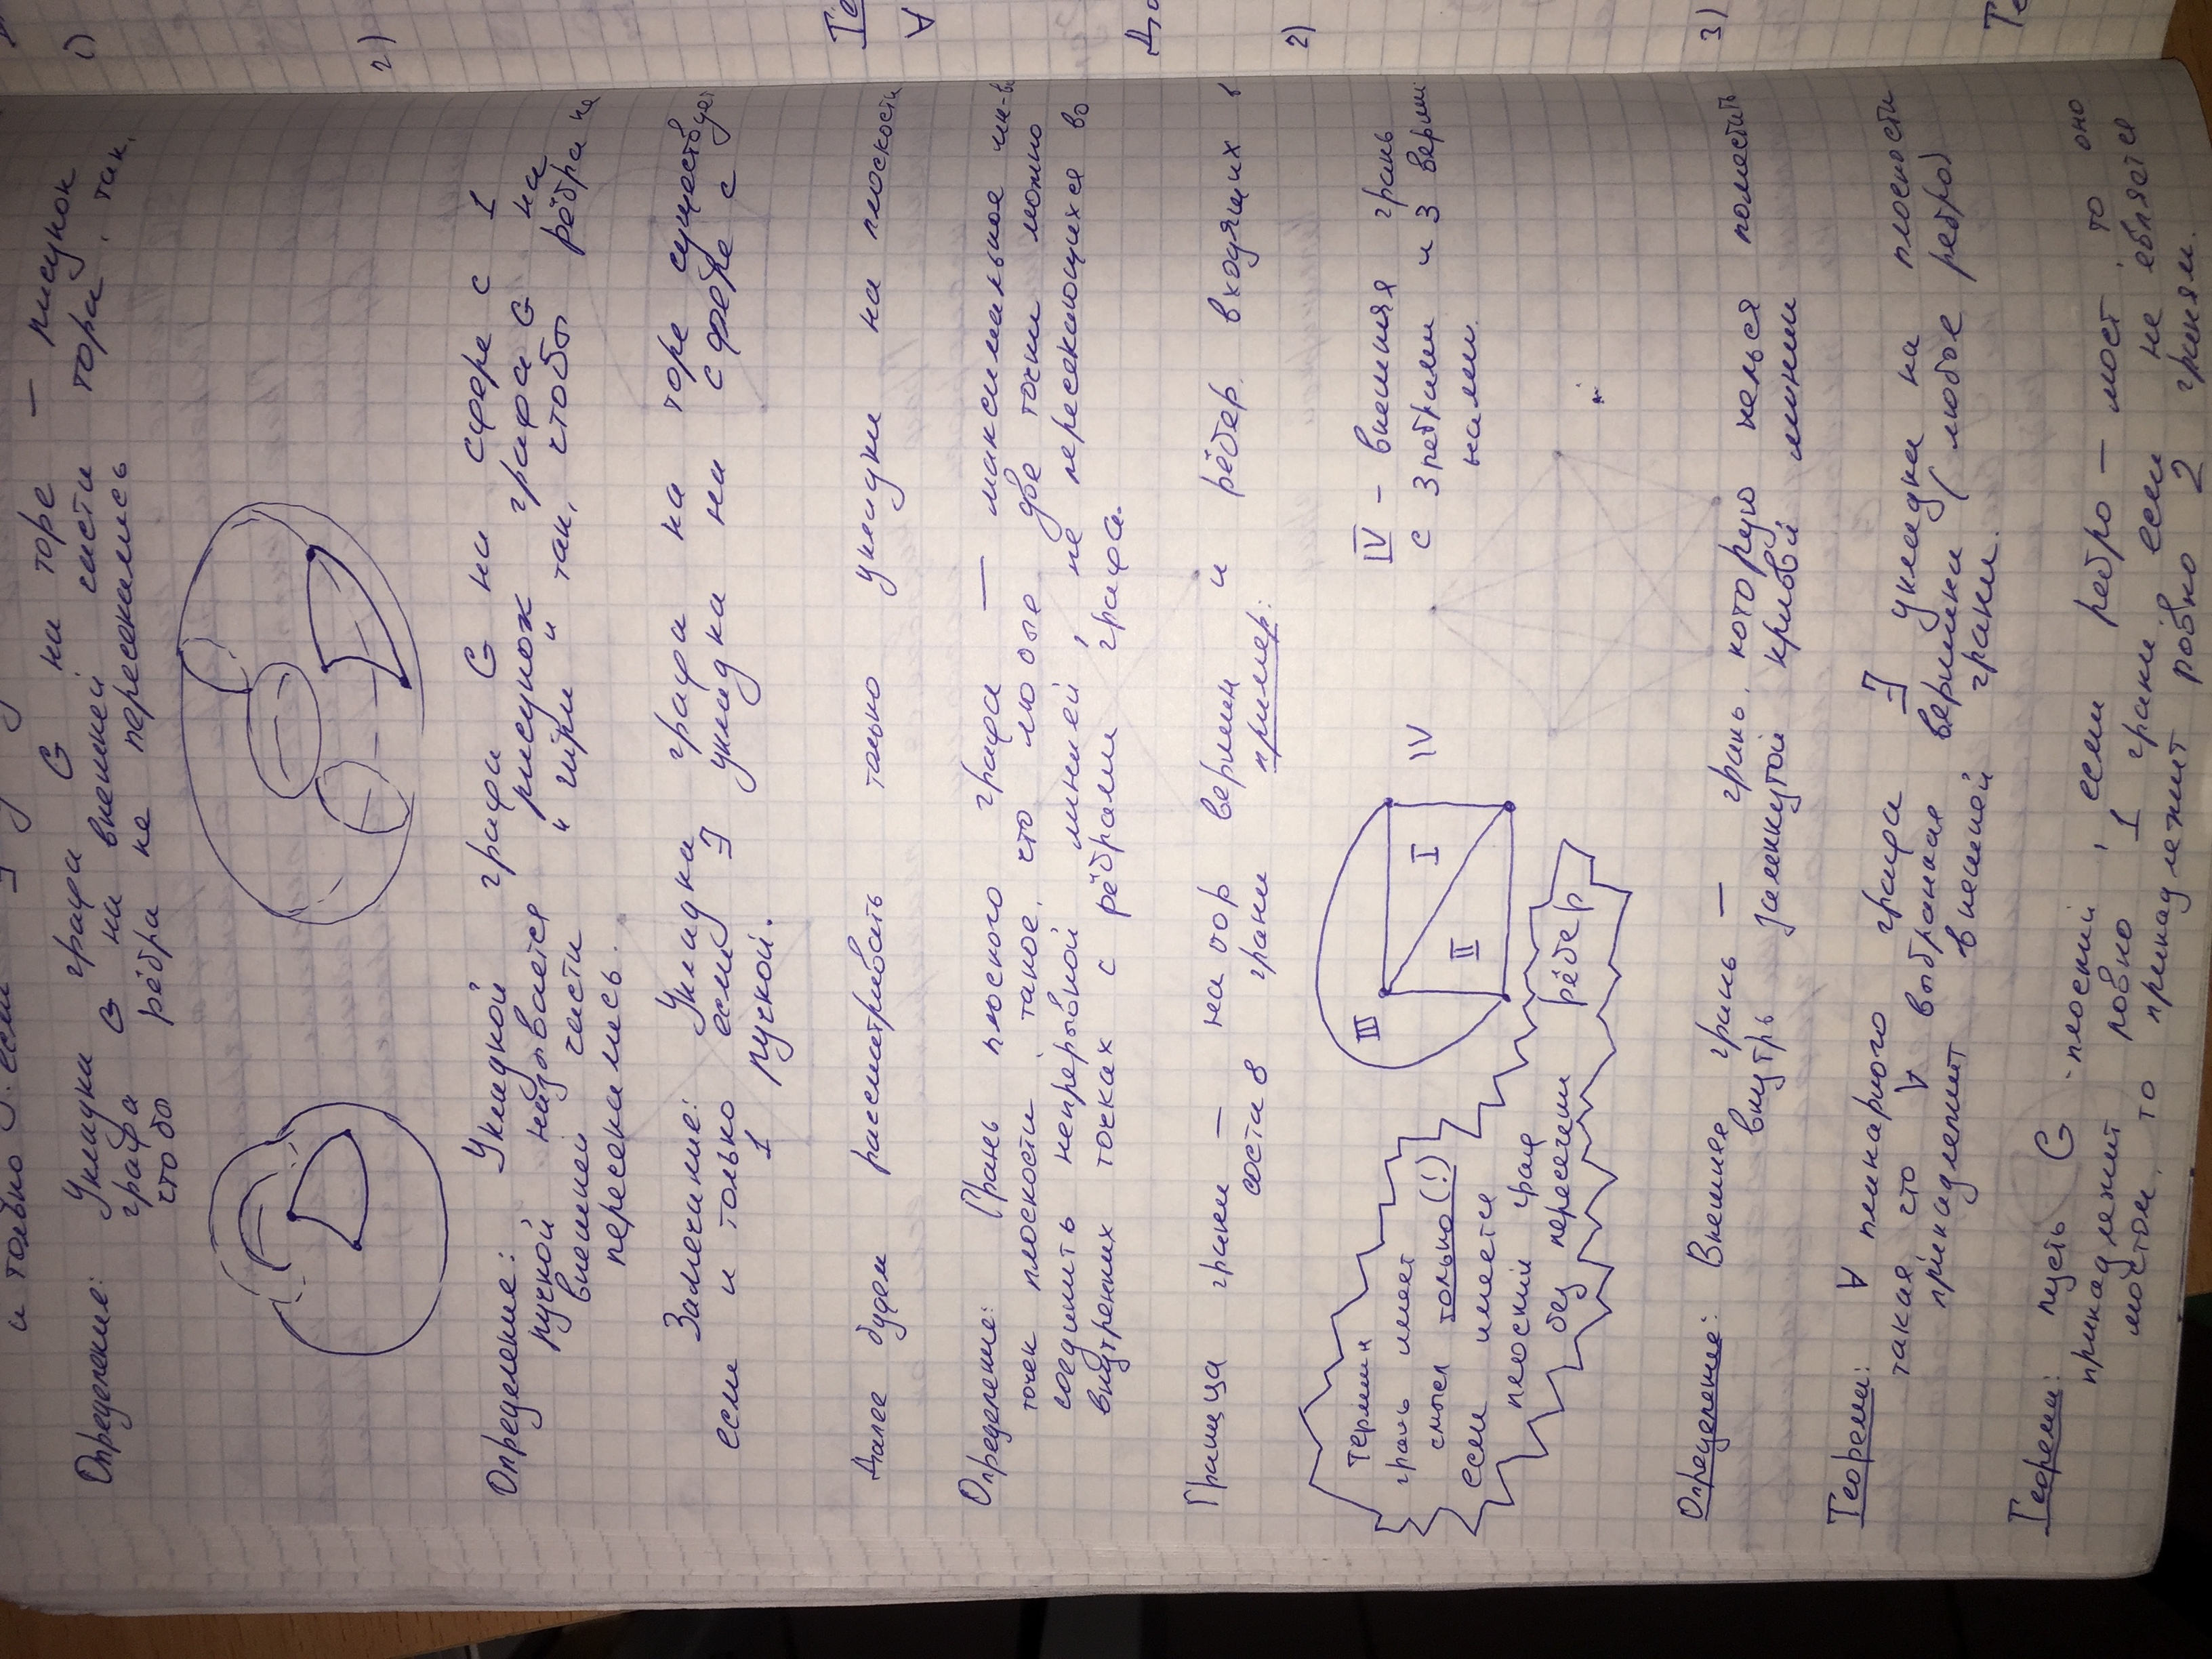 и только если ∃
Определение: Укладка графа G на торе — рисунок
графа G на внешней части тора, так,
чтобы рёбра не пересекались
Определение: Укладкой графа G на сфере с 1
ручкой называется рисунок графа G на
внешней части "гири" так, чтобы рёбра не
пересекались.
Замечание: Укладка графа на торе существует
если и только если ∃ укладка на сфере с
1 ручкой.
Далее будем рассматривать только укладки на плоскости
Определение: Грань плоского графа — максимальное мн-во
точек плоскости, такое, что любые две точки можно
соединить непрерывной линией, не пересекающихся во
внутренних точках с рёбрами графа.
Граница грани — набор вершин и рёбер, входящих в
состав грани пример:
термин
грань имеет
смысл только(!)
если имеется
плоский граф
без пересечени рёбер
III
I
II
IV
IV – внешняя грань
с 3 ребрами и 3 верши
нами.
Определение: Внешнее грань — грань, которую нельзя поместить
внутрь замкнутой кривой линии
Теорема: ∀ планарного графа ∃ укладка на плоскости
такая, что ∀ выбранная вершина (любое ребро)
принадлежит внешней грани.
Теорема: пусть G - плоский, если ребро — мост, то оно
принадлежит ровно 1 грани, если не является
мостом, то принадлежит ровно 2 граням.
2)
Те
∀
До
2)
3)
Те